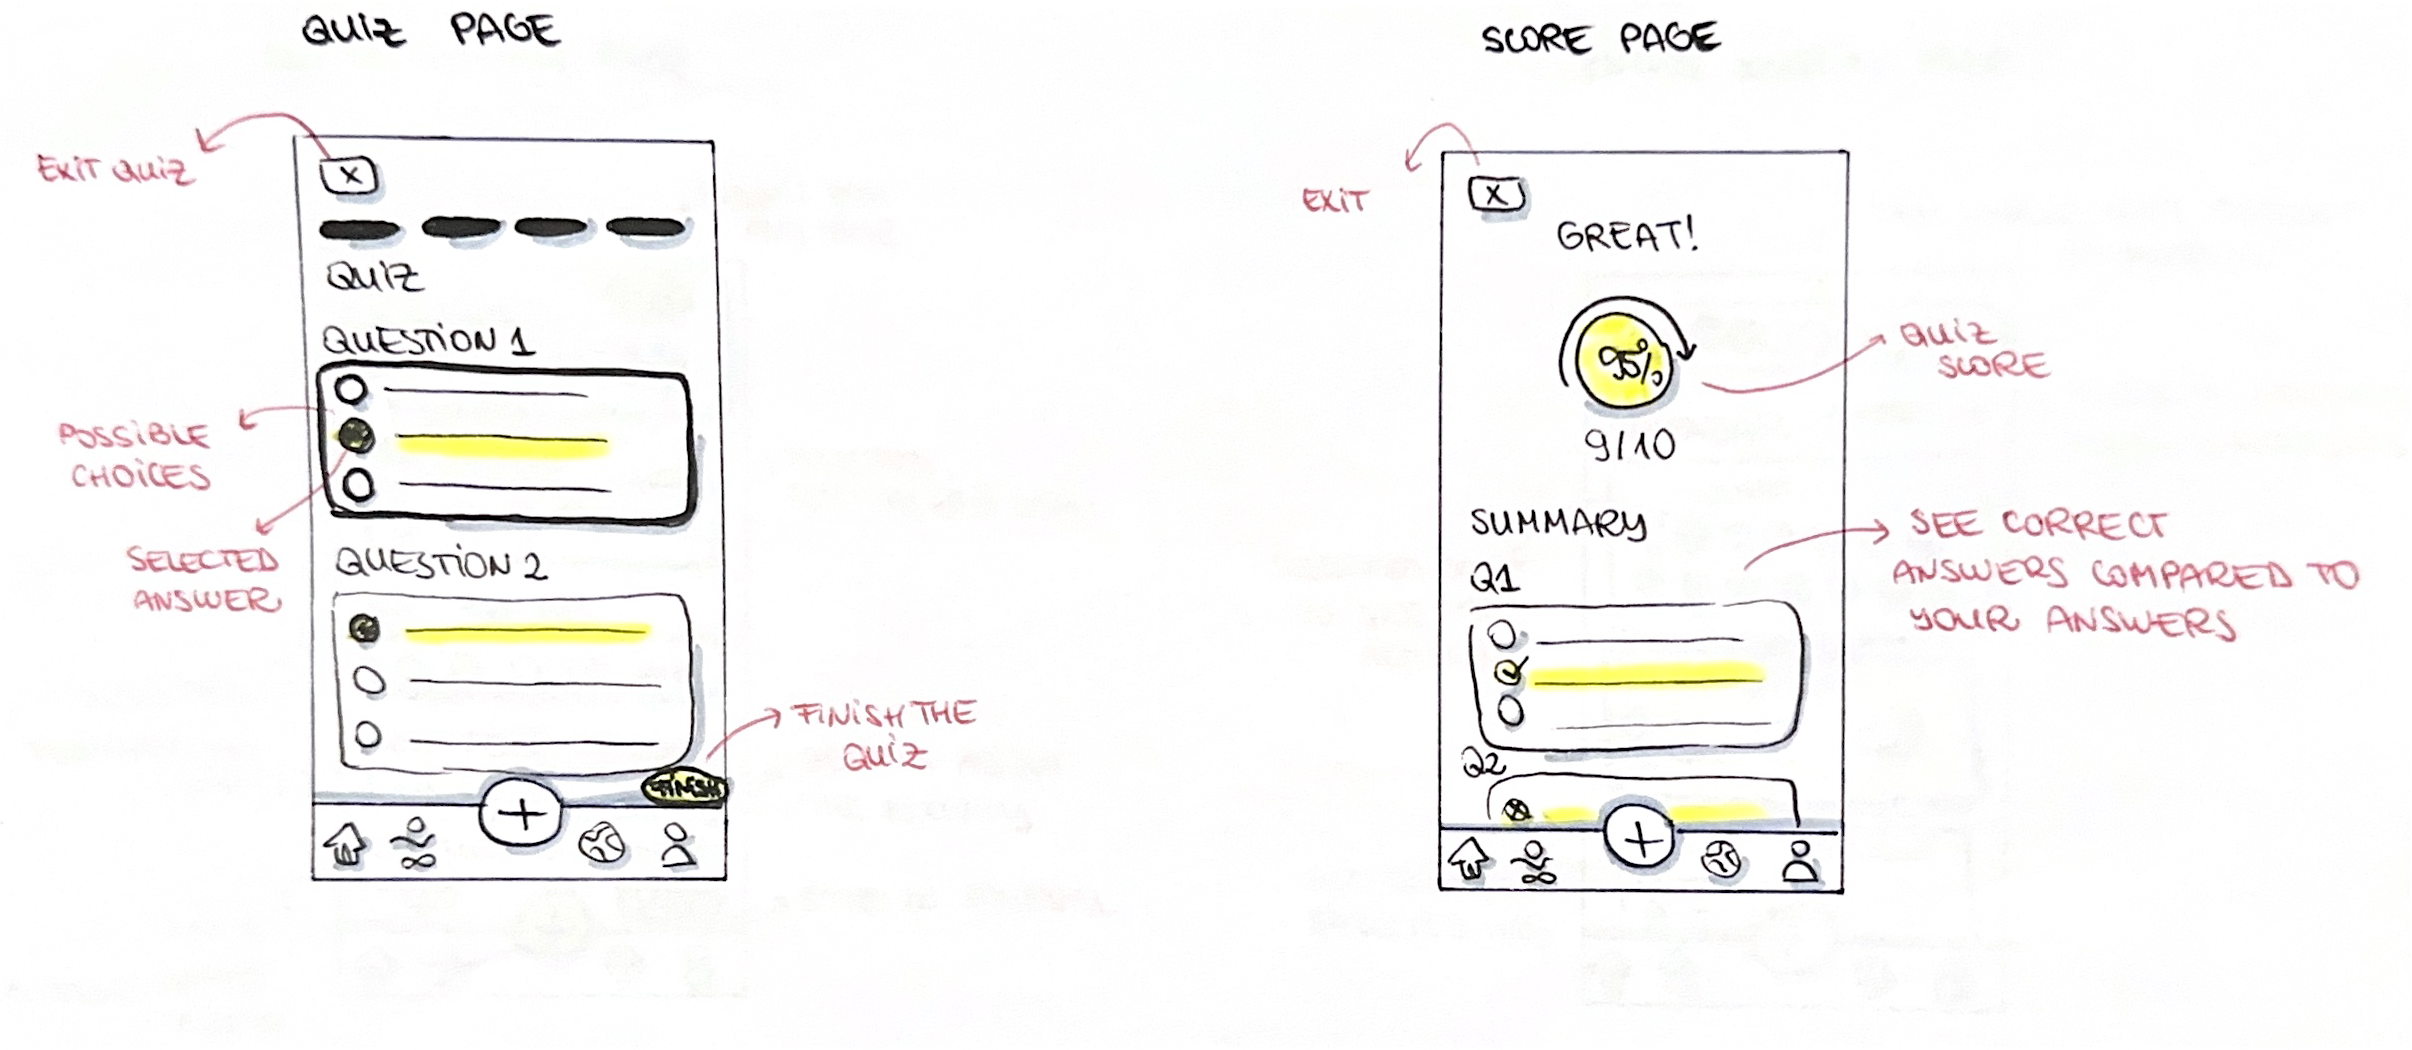 QUIZ PAGE
EXIT QUIZ
X
QUIZ
QUESTION 1
POSSIBLE
CHOICES
SELECTED
ANSWER
QUESTION 2
FINISH THE
QUIZ
FINISH
SCORE PAGE
EXIT
X
GREAT!
95%
9/10
QUIZ
SCORE
SUMMARY
SEE CORRECT
ANSWERS COMPARED TO
YOUR ANSWERS
Q1
Q2